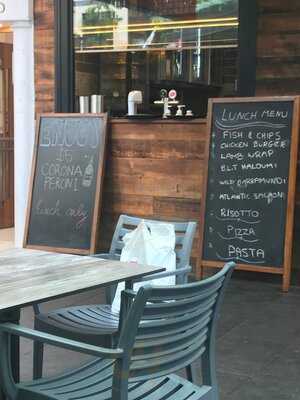 BUCKETS
$25
CORONA
PERONI
Lunch only
LUNCH MENU
FISH & CHIPS
CHICKEN BURGER
LAMB WRAP
B.L.T HALOUMI
WILD BARRAMUNDI
ATLANTIC SALMON
RISOTTO
PIZZA
PASTA